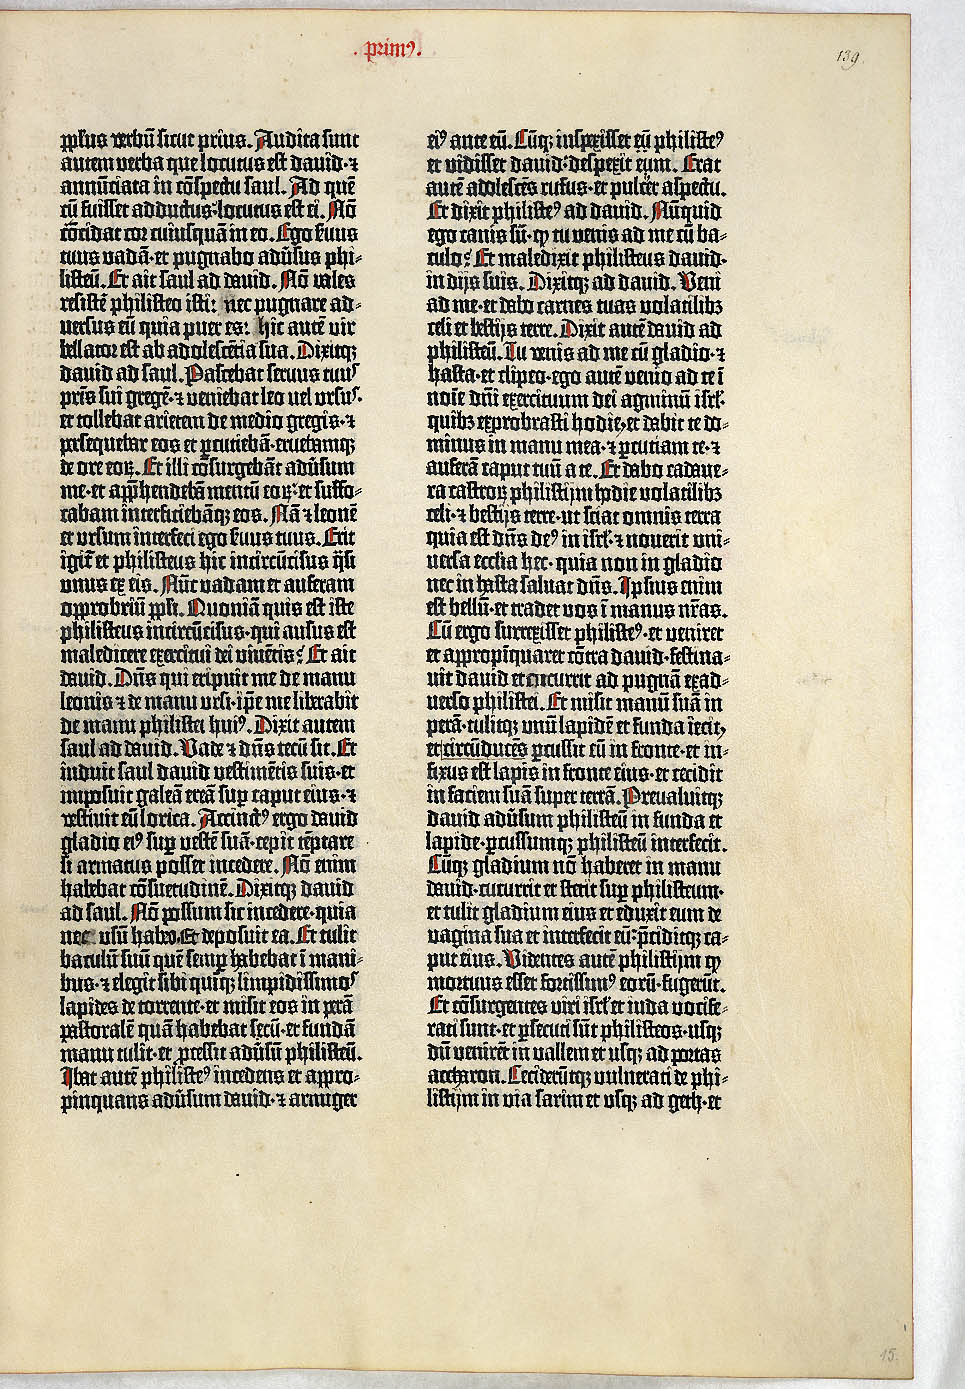 . primꝰ.
139
p̱plus verbū sicut prius. Audita sunt
autem verba que locutus est dauid · ⁊
annūciata in cōspectu saul. Ad quē
cū fuisset adductus: locutus est ei. Nō
cōcidat cor cuiusquā in eo. Ego ẜuus
tuus vadā · et pugnabo adūsus phi⸗
listeū. Et ait saul ad dauid. Nō vales
resistē philisteo isti: nec pugnare ad⸗
uersus eū quia puer es: hic autē vir
bellator est ab adolescētia sua. Dixitqꝫ
dauid ad saul. Pascebat seruus tuuꝰ
pr̄is sui gregē · ⁊ veniebat leo uel ursuꝰ ·
et tollebat arietem de medio gregis · ⁊
ꝑsequebar eos et ꝑcutiebā · eruebamqꝫ
de ore eoꝝ. Et illi cōsurgebāt adūsum
me · et app̄hendebā mentū eoꝝ · et suffo⸗
cabam interficiebāqꝫ eos. Nā ⁊ leonē
et vrsum interfeci ego ẜuus tuus. Erit
igit̄ et philisteus hic incircūcisus q̄si
vnus ex eis. Nūc vadam et auferam
opprobriū pp̄li. Quoniā quis est iste
philisteus incircūcisus · qui ausus est
maledicere exercitui dei viuētis? Et ait
dauid. Dn̄s qui eripuit me de manu
leonis ⁊ de manu vrsi · ip̄e me liberabit
de manu philistei huiꝰ. Dixit autem
saul ad dauid. Vade ⁊ dn̄s tecū sit. Et
induit saul dauid vestimētis suis · et
imposuit galeā ereā suꝑ caput eius · ⁊
vestiuit eū lorica. Accinctꝰ ergo dauid
gladio eiꝰ suꝑ vestē suā · cepit tēptare
si armatus posset incedere. Nō enim
habebat cōsuetudinē. Dixitqꝫ dauid
ad saul. Nō possum sic incedere · quia
nec vsū habeo. Et deposuit ea. Et tulit
baculū suū quē semꝑ habebat ī mani⸗
bus · ⁊ elegit sibi quīqꝫ limpidissimoꝰ
lapides de torrente · et misit eos in perā
pastoralē quā habebat secū · et fundā
manu tulit · et ꝓcessit adūsū philisteū.
Ibat autē philisteꝰ incedens et appro⸗
pinquans adūsum dauid · ⁊ armiger
eiꝰ ante eū. Cūqꝫ inspexisset eū philisteꝰ
et vidisset dauid · despexit eum. Erat
autē adolescēs rufus · et pulc̄er aspectu.
Et dixit philisteꝰ ad dauid. Nūquid
ego canis sū · ꝙ tu venis ad me cū ba⸗
culo? Et maledixit philisteus dauid ·
in dijs suis. Dixitqꝫ ad dauid. Veni
ad me · et dabo carnes tuas volatilibꝫ
celi et bestijs terre. Dixit autē dauid ad
philisteū. Tu venis ad me cū gladio · ⁊
hasta · et clipeo · ego autē venio ad te ī
noīe dn̄i exercituum dei agminū isrl̄ ·
quibꝫ exprobrasti hodie, et dabit te do⸗
minus in manu mea · ⁊ ꝑcutiam te · ⁊
auferā caput tuū a te. Et dabo cadaue⸗
ra castroꝝ philistijm hodie volatilibꝫ
celi · ⁊ bestijs terre · ut sciat omnis terra
quia est dn̄s deꝰ in isrl̄ · ⁊ nouerit vni⸗
uersa ecclia hec · quia non in gladio
nec in hasta saluat dn̄s. Ipsius enim
est bellū · et tradet vos ī manus nr̄as.
Cū ergo surrexisset philisteꝰ · et veniret
et appropīquaret cōtra dauid · festina⸗
uit dauid et cucurrit ad pugnā exad⸗
uerso philistei. Et misit manū suā in
perā · tulitqꝫ vnū lapidē et funda iecit,
et circūducēs ꝑcussit eū in fronte · et in⸗
fixus est lapis in fronte eius · et cecidit
in faciem suā super terrā. Preualuitqꝫ
dauid adūsum philisteū in funda et
lapide · ꝑcussumqꝫ philisteū interfecit.
Cūqꝫ gladium nō haberet in manu
dauid · cucurrit et stetit suꝑ philisteum ·
et tulit gladium eius et eduxit eum de
vagina sua et interfecit eū: p̄ciditqꝫ ca⸗
put eius. Videntes autē philistijm ꝙ
mortuus esset fortissimꝰ eorū · fugerūt.
Et cōsurgentes viri isrl̄ et iuda vocife⸗
rati sunt · et ꝑsecuti sūt philisteos · usqꝫ
dū venirēt in vallem et usqꝫ ad portas
accharon. Ceciderūtqꝫ vulnerati de phi⸗
listijm in via sarim et vsqꝫ ad geth · et
15.